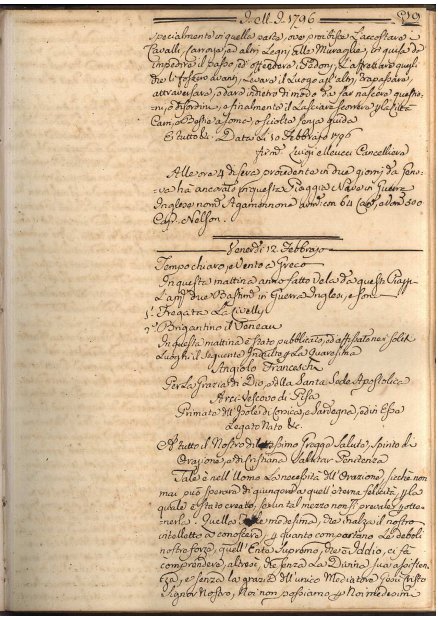 J. M. J. 1796
specialmente in quella parte, ove proibisce l'accostare i
Cavalli, sarroze, ad altri Legni alle Muraglie, in guisa da
impedire il passo ed offendere i Pedoni, l'affrettare quegli
che l'fossero avanti, levare il luogo agl'altri, trapassare,
attraversare, o dare indietro di modo da far nascere questio
ni, o disordini, o finalmente il lasciare scorrere p la Città
Cani, o Bestie a some, o sciolte senza guida
E tutto &c. Data li 10 Febbrajo 1796
firm.
Luigi Cancelliere
Alle ore 4 di sera procedente in due giorni da Geno-
va ha ancorato in queste Piaggie Nave in Guerra
Inglese nom. Agamennone arm. con 64 Can. ed 500
Cap. Nelson.
Venerdì 12. Febbrajo
Tempo chiaro, e Vento a Greco
In questa mattina anno fatto vela da queste Piagge
due Bastim. in Guerra Inglesi, e sono
1° Fregata La
2° Brigantino il
In questa mattina è stato pubblicato, ed affissato nei soliti
Luoghi il seguente Indulto p la Quaresima
Angiolo Franceschi
Per La Grazia di Dio, e della Santa Sede Apostolica
Arcivescovo di Pisa
Primate dell'Isole di Corsica, e Sardegna, ed in Esse
Legato Nato &c.
A tutto il Nostro dilettissimo Gregge Salute, Spirito di
Orazione, e di Cristiana Salutar Penitenza
Tale è nell'Uomo la necessità dell'Orazione, sicchè non
mai può sperare di giungere a quell'eterna felicità, p la
quale è stato creato, se un tal mezzo non si prevale p otte-
nerla. Quella medesima, che inalza il nostro
intelletto a conoscere, p quanto comportano Le deboli
nostre forze, quell'Ente Supremo, che è Iddio, ci fà
comprendere altresì, che senza La Divina sua assisten-
za, e senza la grazia dell'unico Mediatore Gesù Cristo
Signor Nostro, Noi non possiamo p Noi medesimi